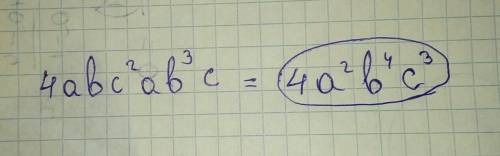 4abc²ab³c = 4a²b⁴c³